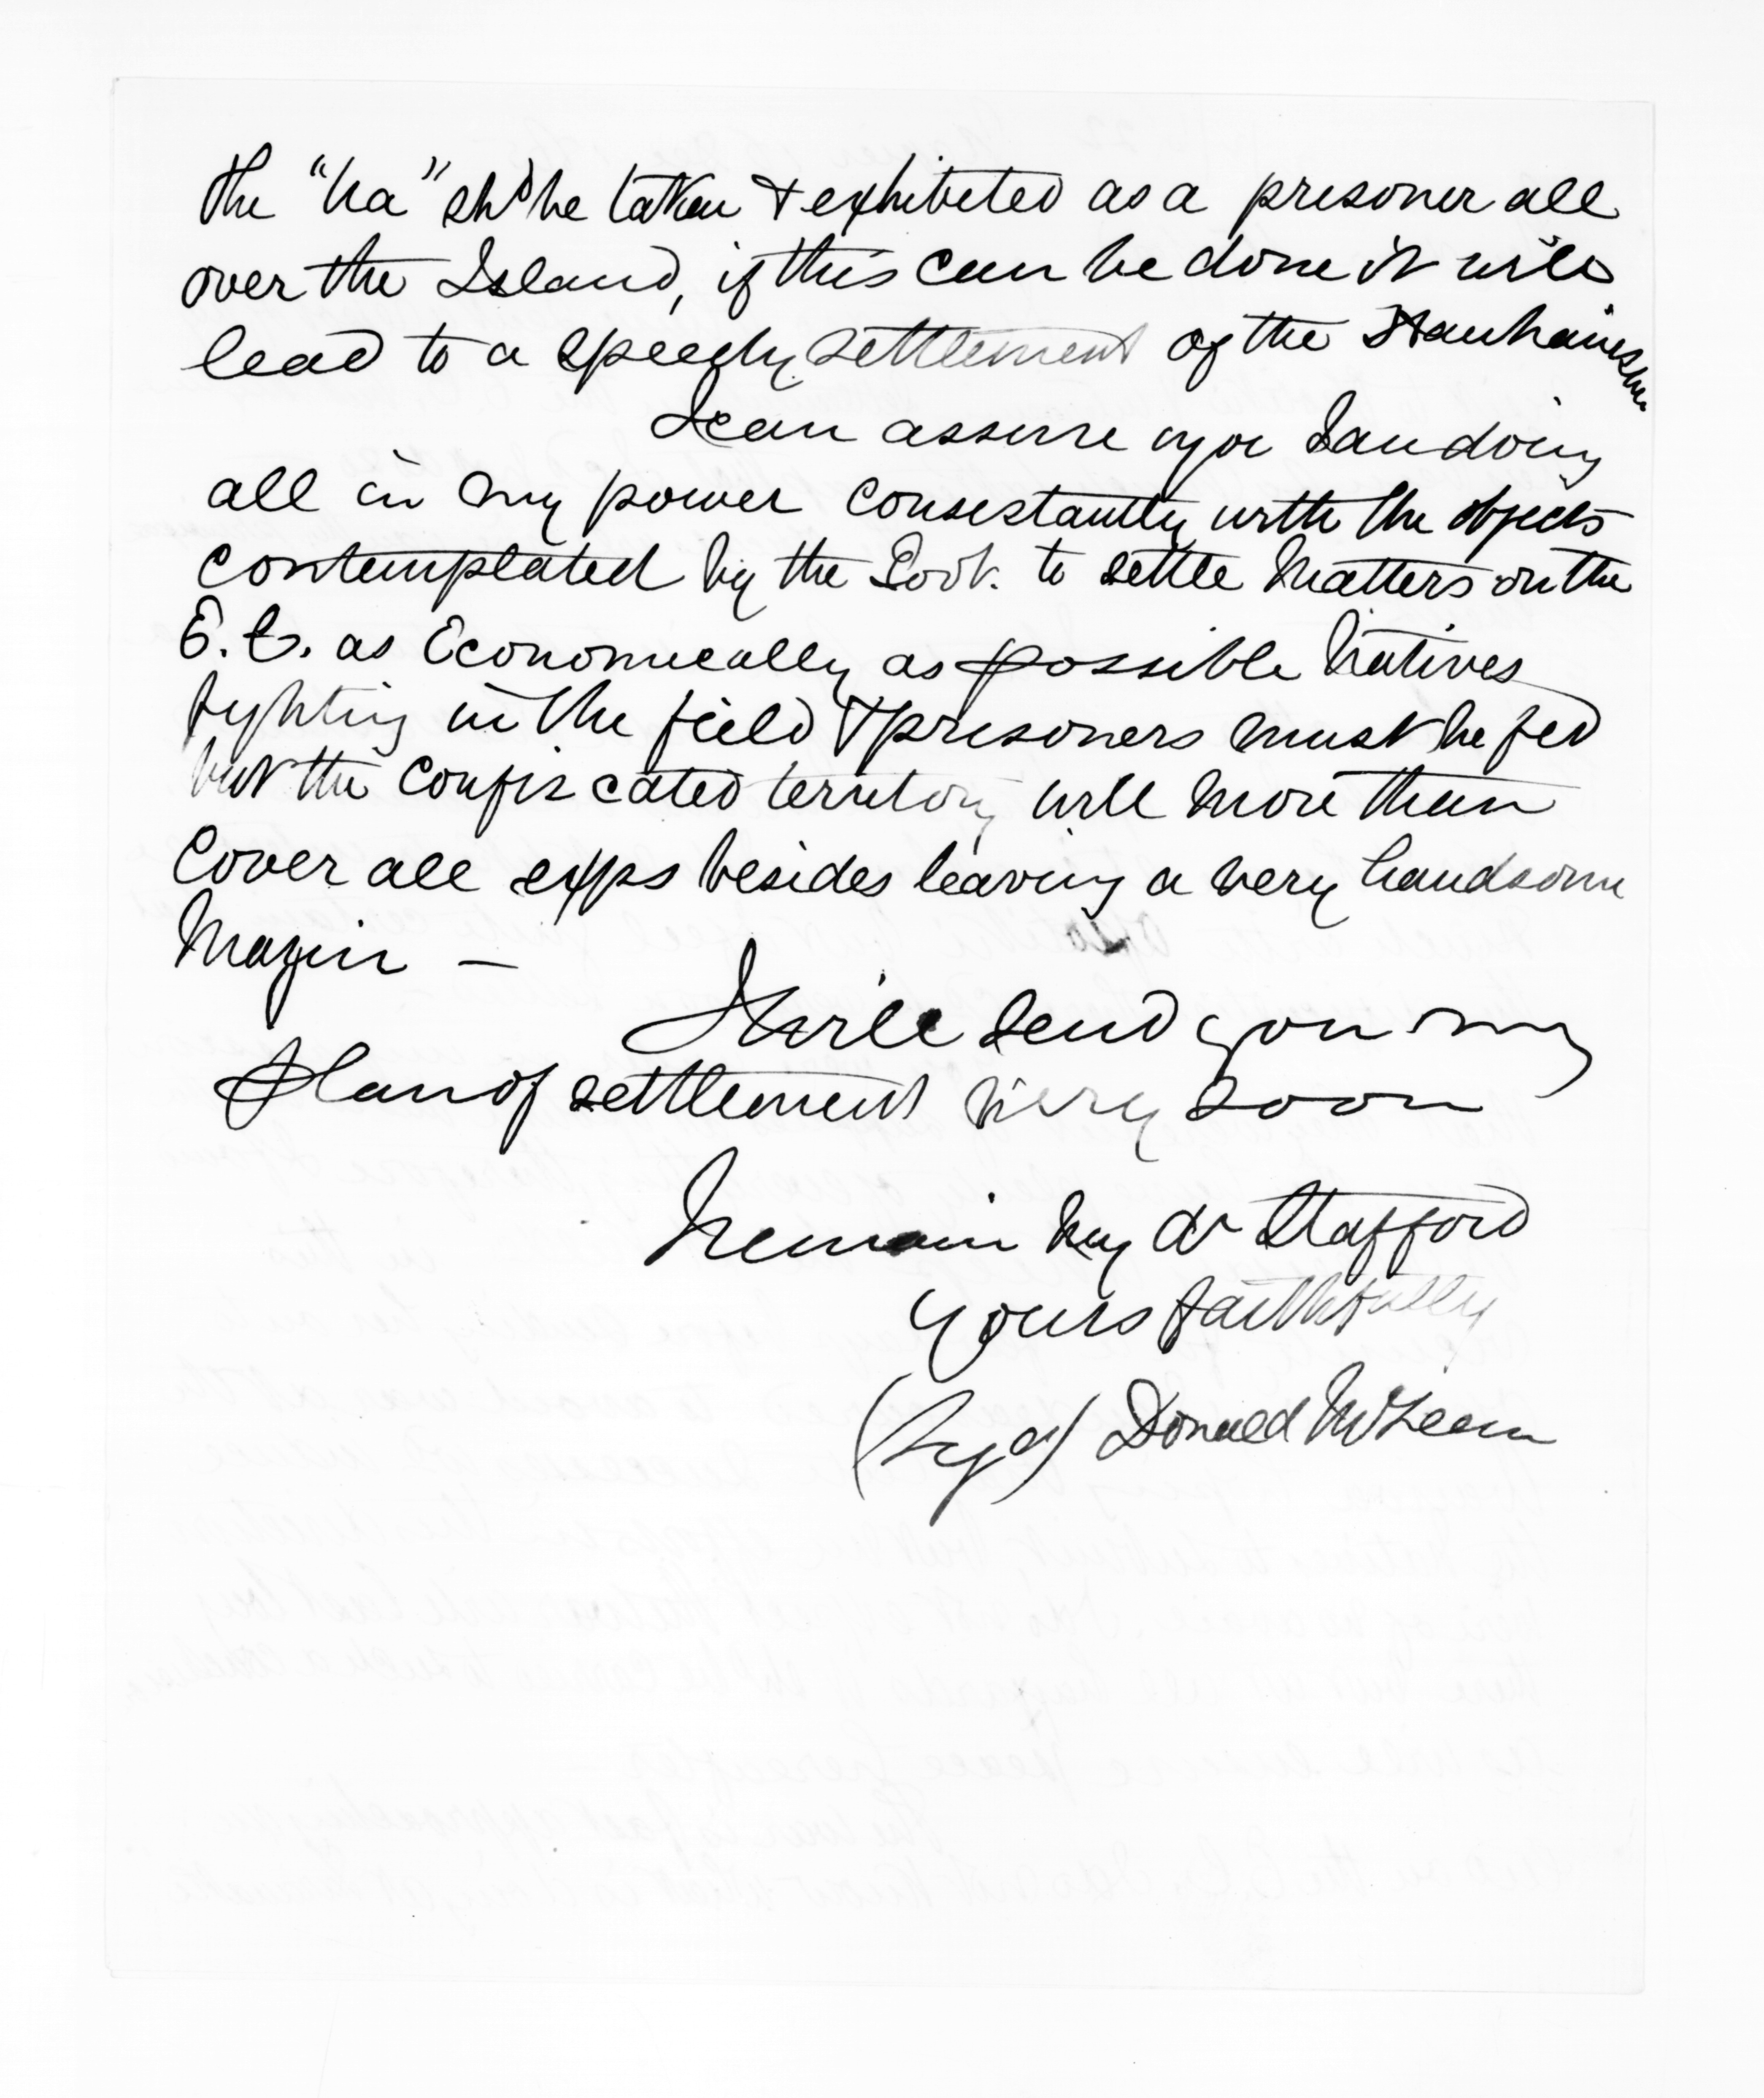 the "Ua" shd be taken & exhibited as a prisoner all
over the Island, if this can be done it will
lead to a speedy settlement of the Hauhauism
I can assure you I am doing
all in my power consestantly with the objects
contemplated by the Govt. to settle matters on the
E.C. as Economically as possible Natives
fighting in the field & prisoners must be fed
but the confiscated territory will more than
cover all exps besides leaving a very handsome
Magin —
I will send you my
plan of settlement very soon
I remain my dr Stafford
yours faithfully
(Sygd) Donald McLean